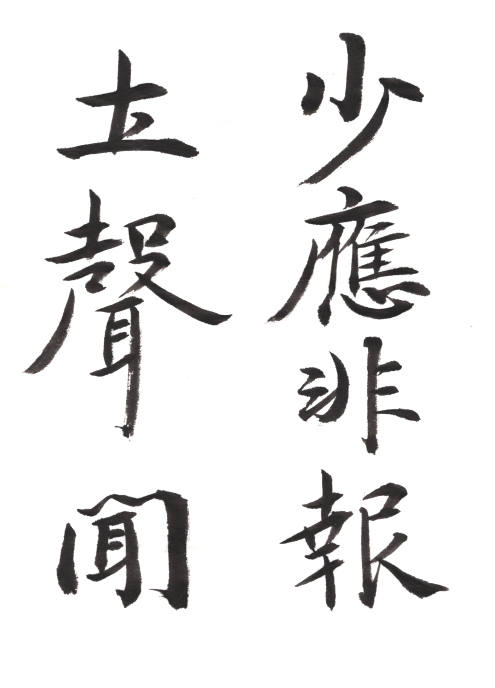 少應非報
土聲聞